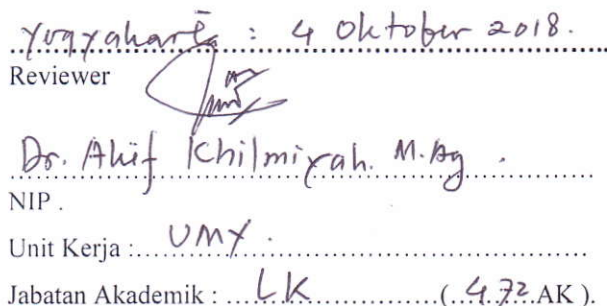 Yogyakarta : 4 Oktober 2018.
Reviewer
Dr. Akif Khilmiyah. M.Ag .
NIP .
Unit Kerja : UMY .
Jabatan Akademik : LK ( 472 AK ).